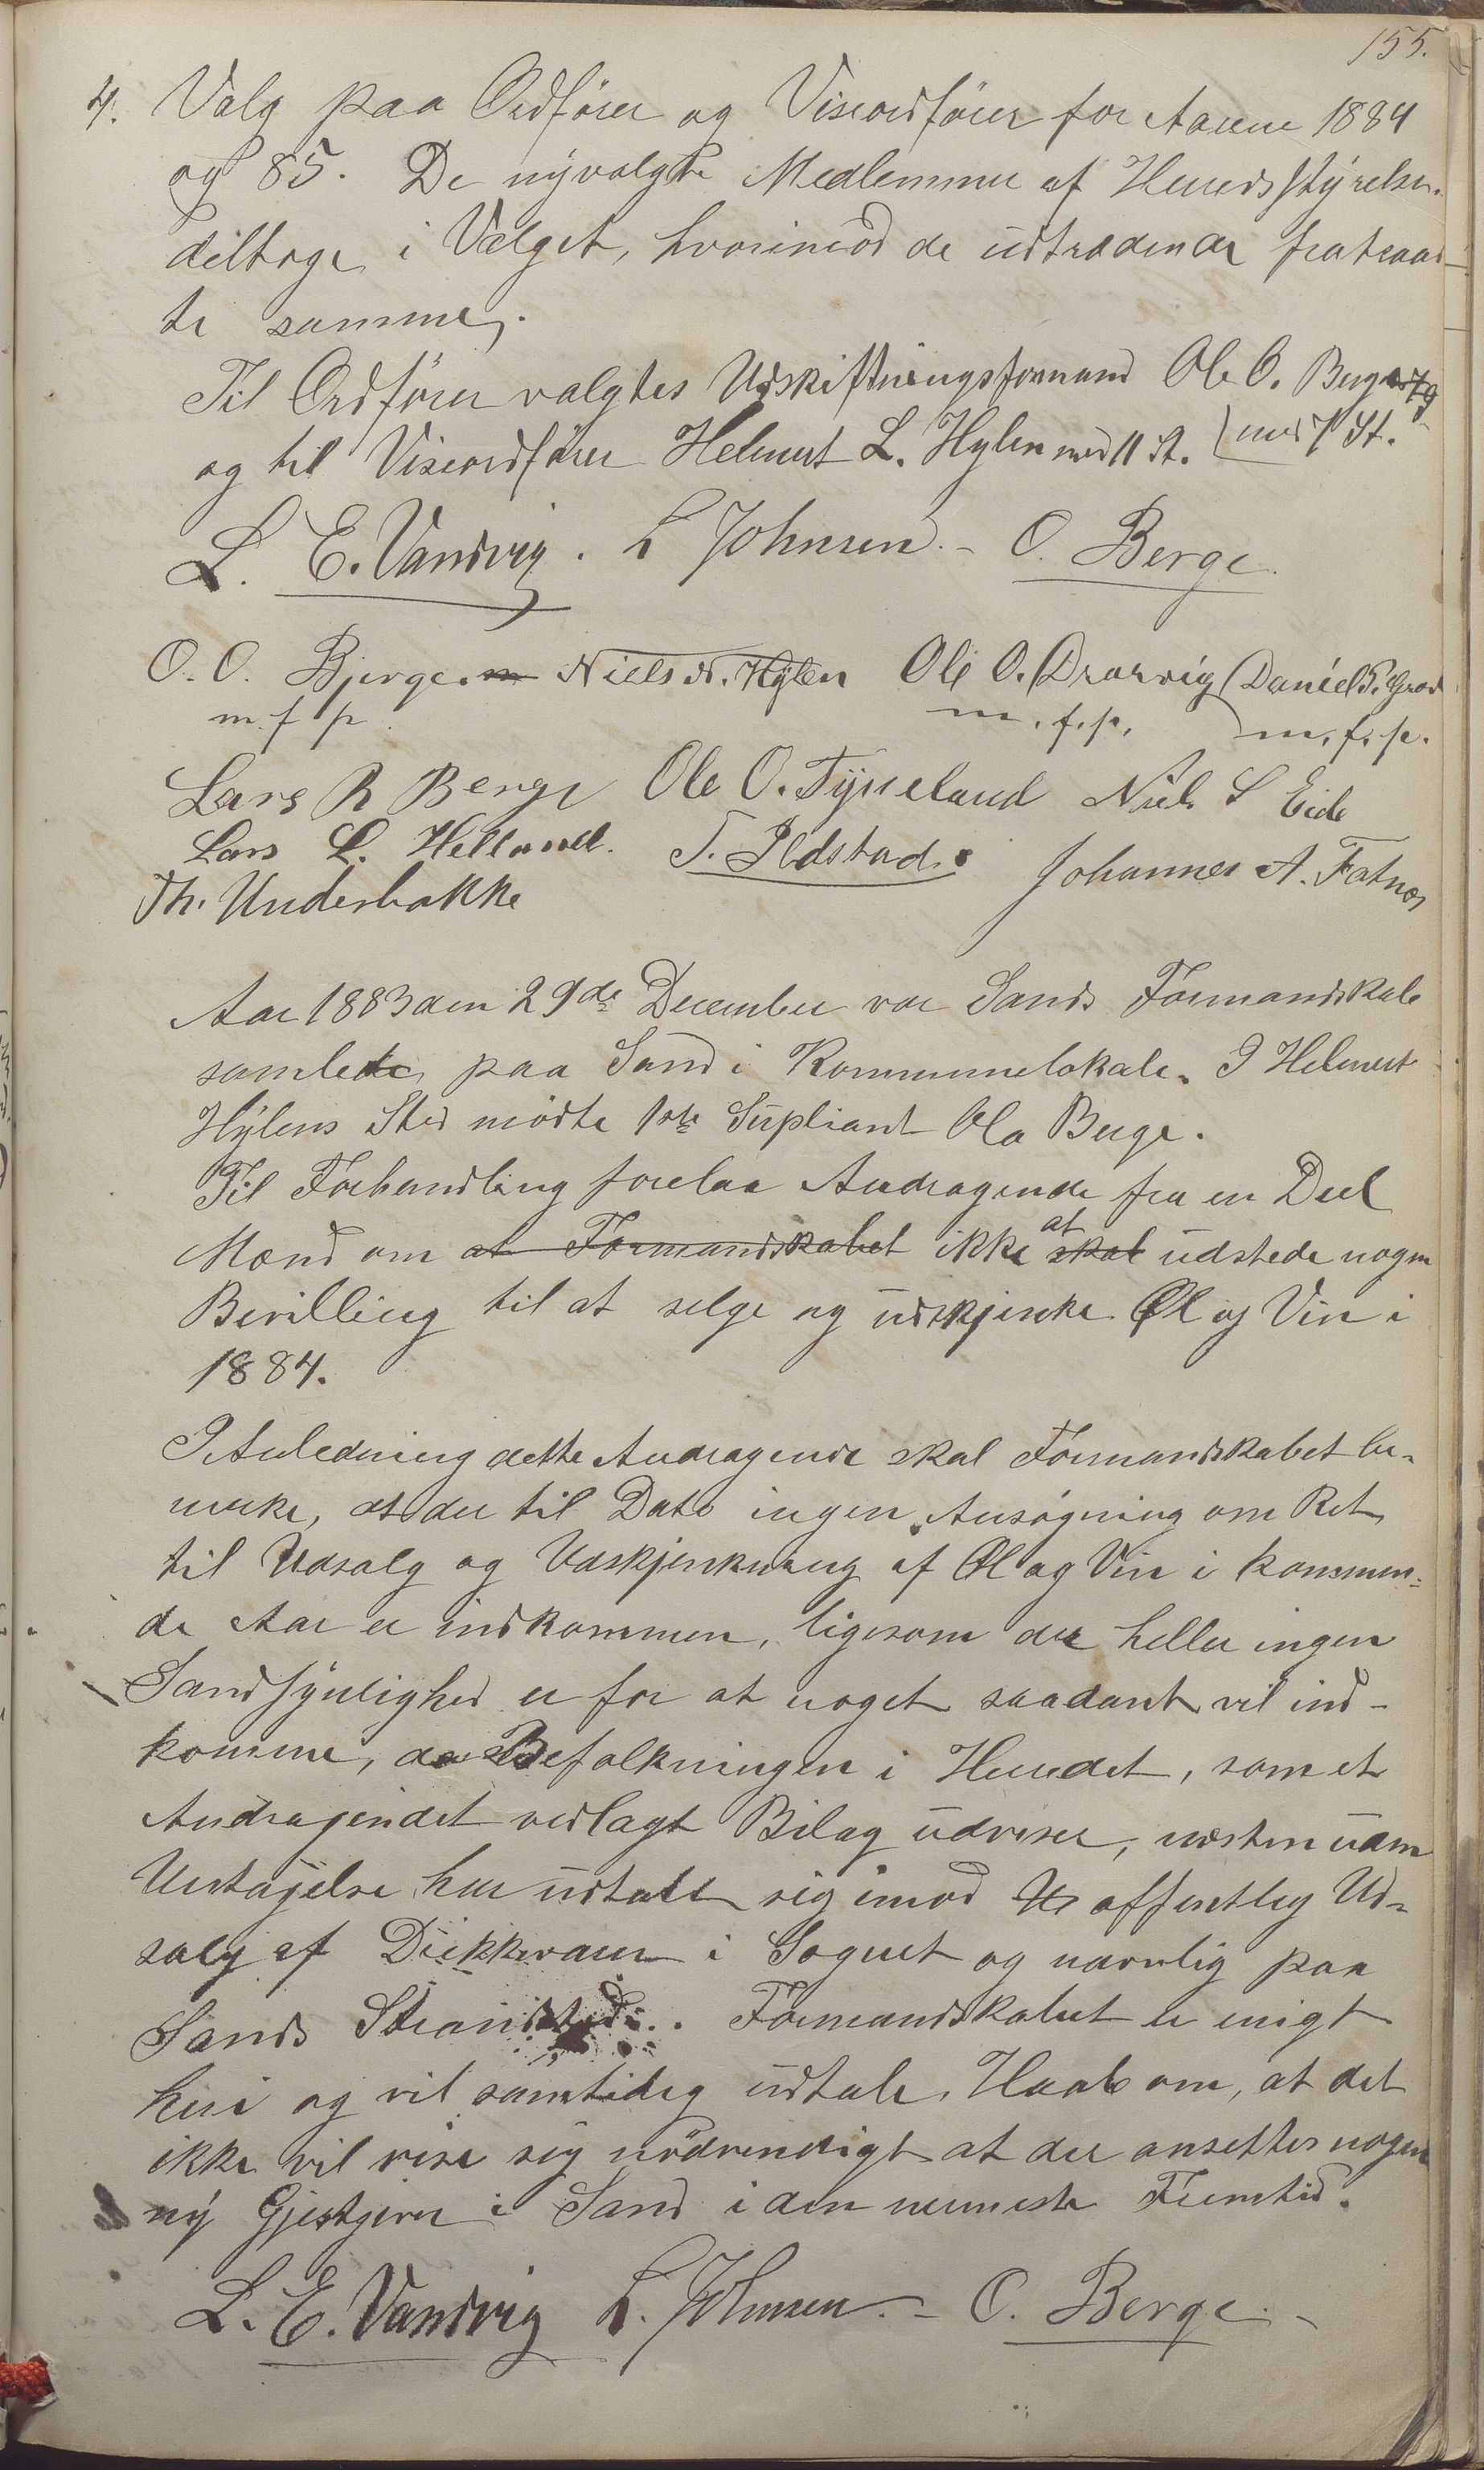 155.
4. Valg paa Ordfører og Viseordfører for Aarene 1884
og 85. De nyvalgte Medlemmer af Herredsstyrelsen
deltoge i Valget, hvorimod de udtrædende fratraad-
te samme.
Til Ordfører valgtes Udskiftningsformand Ole O. Berge
og til Viseordfører Helmert L. Hylen med 11 St. med St.
L. E. Vandvig. L Johnsen. - O. Berge.
O. O. Bjerge. Niels N. Hylen Ole O. Drarvig Daniel
m. f. p. m. f. p. m. f. p.
Lars R Berge Ole O. Tysseland Niels S Eide
Lars L. Helland. T. Ildstad. Johannes A. Fatnes
Th. Underbakke
Aar 1883 den 29de December var Sands Formandskab
samlede paa Sand i Kommunelokale. I Helmert
Hylens Sted mødte 1ste Supliant Ola Berge.
Til Forhandling forelaa Andragende fra en Deel
Mænd om at Formandskabet ikke at skal udstede nogen
Bevilling til at selge og udskjenke Øl og Vin i
1884.
I Anledning dette Andragende skal Formandskabet be-
merke, at der til Dato ingen Ansøgning om Ret
til Udsalg og Udskjenkning af Øl og Vin i kommen-
de Aar er indkommen, ligesom der heller ingen
Sandsynlighed er for at noget saadant vil ind-
komme, da Befolkningen i Herredet, som et
Andragendet vedlagt Bilag udviser, nesten uden
Untagelse har udtalt sig imod offentlig Ud-
salg af Drikkevarer i Sognet og navnlig paa
Sands Strandsted. Formandskabet er enigt
heri og vil samtidig udtale Haab om, at det
ikke vil vise sig nødvendigt at der ansettes nogen
ny Gjestgiver i Sand i den nermeste Fremtid.
L. E. Vandvig L. Johnsen. - O. Berge. -